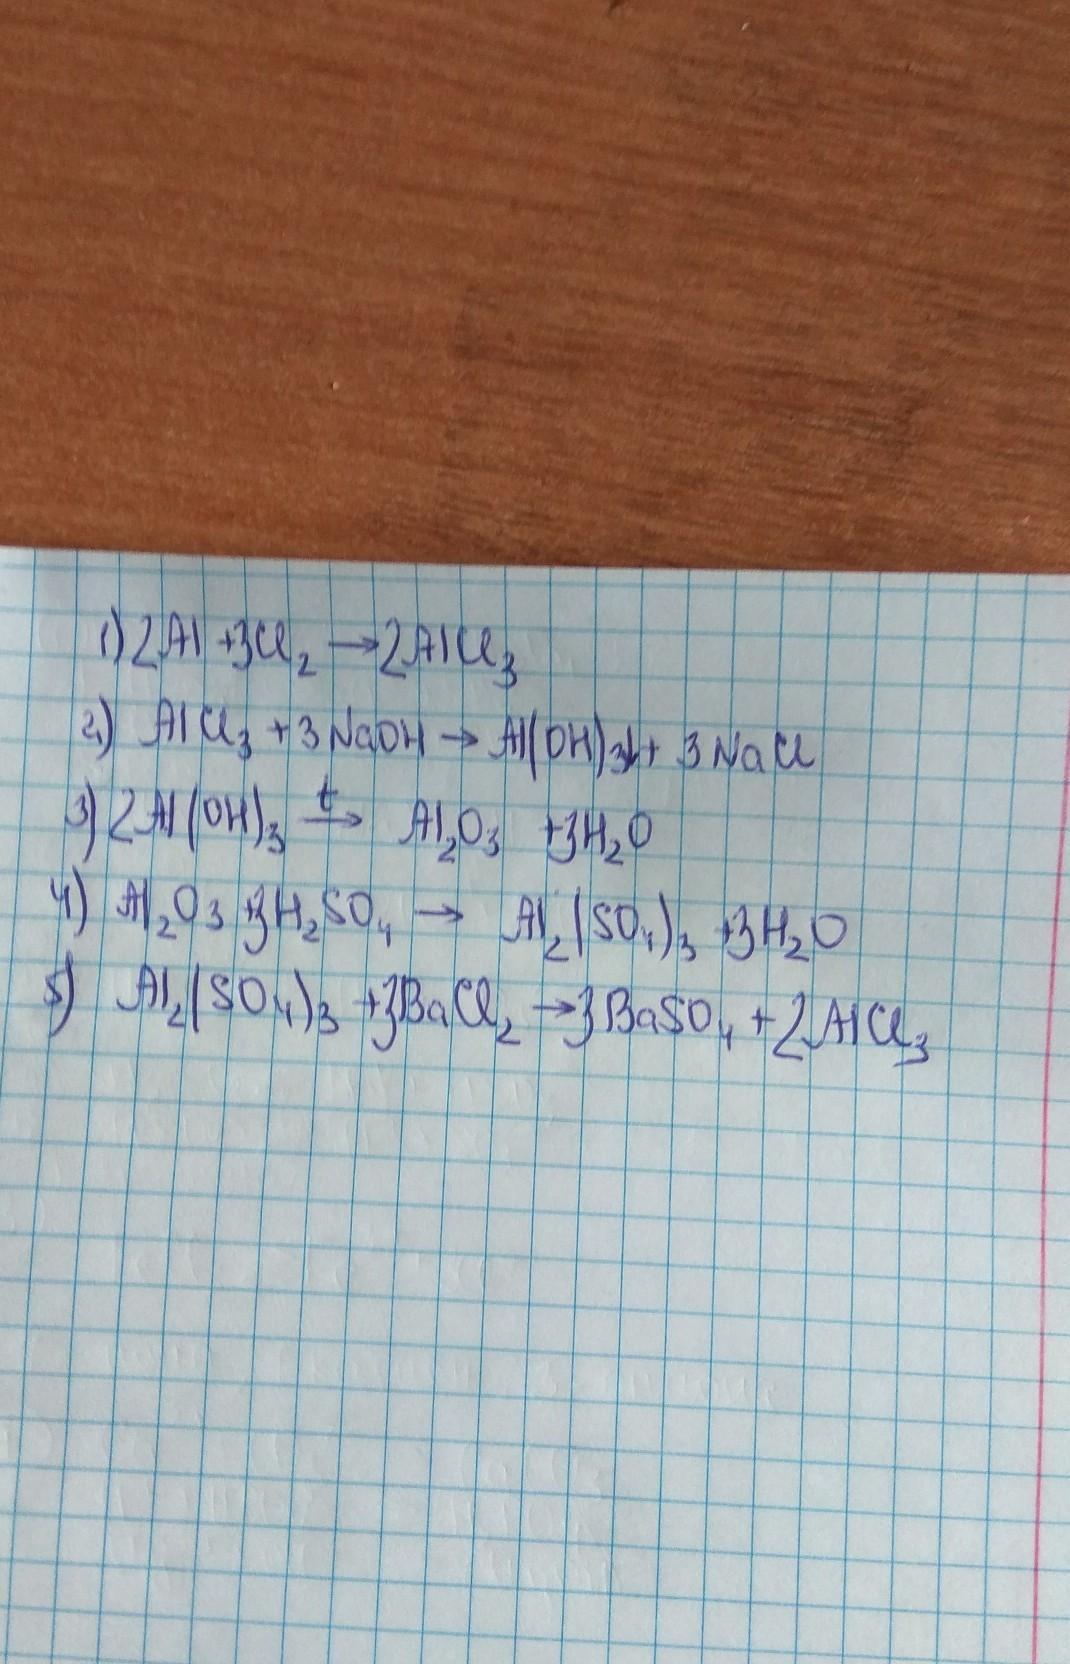 1) 2Al + 3Cl₂ → 2AlCl₃
2.) AlCl₃ + 3NaOH → Al(OH)₃↓ + 3NaCl
3) 2Al(OH)₃ t→ Al₂O₃ + 3H₂O
4) Al₂O₃ + 3H₂SO₄ → Al₂(SO₄)₃ + 3H₂O
5) Al₂(SO₄)₃ + 3BaCl₂ → 3BaSO₄ + 2AlCl₃